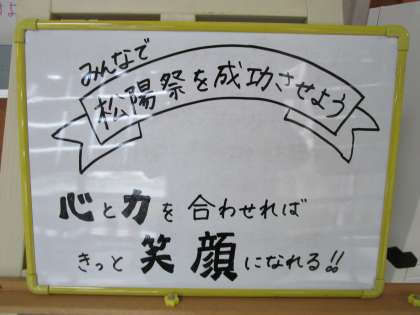 みんなで
松陽祭を成功させよう
心と力を合わせれば
きっと笑顔になれる!!